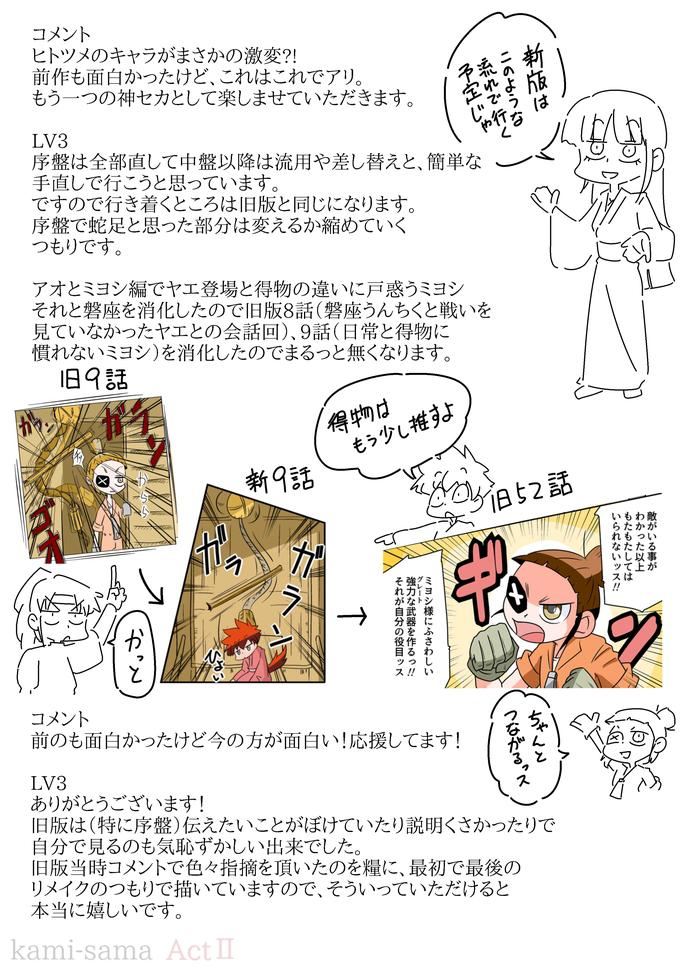 コメント
ヒトツメのキャラがまさかの激変?!
前作も面白かったけど、これはこれでアリ。
もう一つの神セカとして楽しませていただきます。
新版は
このような
流れで行く
予定じゃ
LV3
序盤は全部直して中盤以降は流用や差し替えと、簡単な
手直しで行こうと思っています。
ですので行き着くところは旧版と同じになります。
序盤で蛇足と思った部分は変えるか縮めていく
つもりです。
アオとミヨシ編でヤエ登場と得物の違いに戸惑うミヨシ
それと磐座を消化したので旧版8話(磐座うんちくと戦いを
見ていなかったヤエとの会話回)、9話(日常と得物に
慣れないミヨシ)を消化したのでまるっと無くなります。
旧9話
ガラン
ガラン
からら
ゴオ
かっと
新9話
ガラ
ガラン
ひょい
得物は
もう少し推すよ
旧52話
敵がいる事が
わかった以上
もたもたしては
いられないッス!!
ギン
ミヨシ様にふさわしい
強力な武器を作るっ!!
グレート
それが自分の役目ッス
ちゃんと
つながるっス
コメント
前のも面白かったけど今の方が面白い!応援してます!
LV3
ありがとうございます!
旧版は(特に序盤)伝えたいことがぼけていたり説明くさかったりで
自分で見るのも気恥ずかしい出来でした。
旧版当時コメントで色々指摘を頂いたのを糧に、最初で最後の
リメイクのつもりで描いていますので、そういっていただけると
本当に嬉しいです。
kami-sama ActⅡ